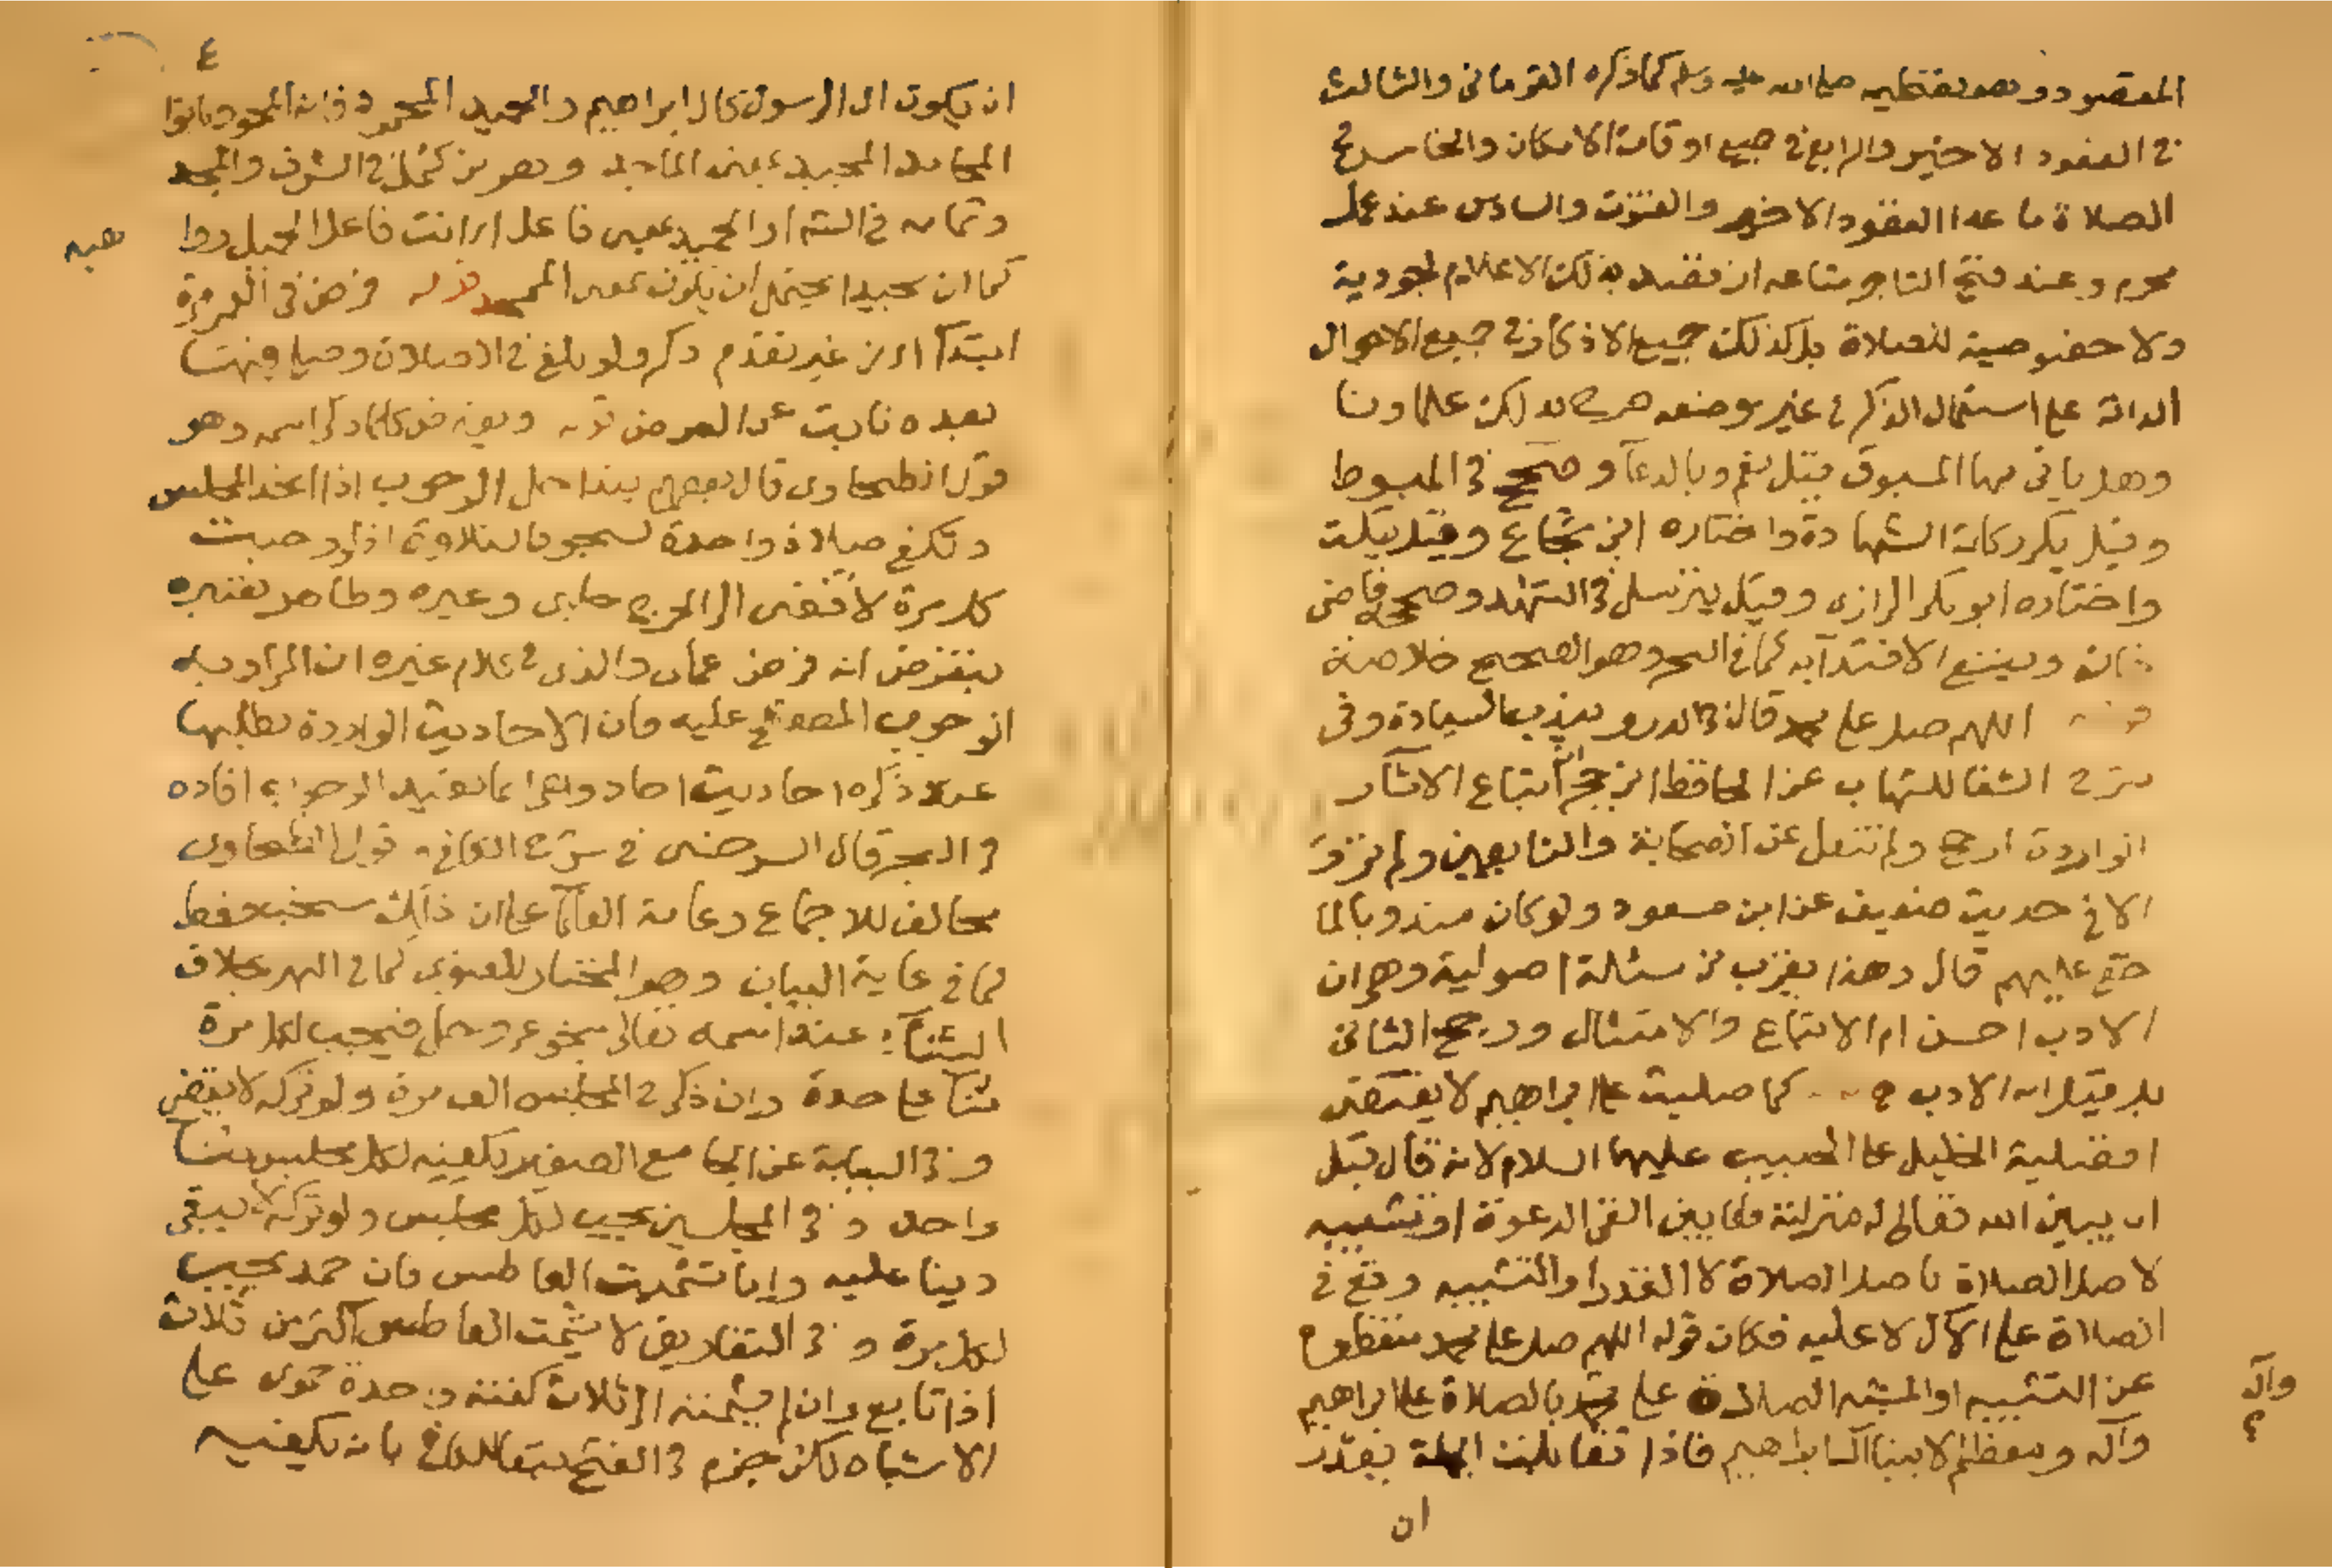 المقصود وهو تعظيمه صلى الله عليه وسلم كما ذكره القرماني والثالث
في القعود الاخير والرابع في جميع اوقات الامكان والخامس في
الصلاة ما عدا القعود الاخير والقنوت والسادس عند عمل
محرم وعند فتح التاجر متاعه ان قصد بذلك الاعلام بجودته
ولا خصوصية للصلاة بل كذلك جميع الاذكار في جميع الاحوال
الدالة على استعمال الذكر في غير موضعه صرح بذلك علماونا
وهل ياتي بها المسبوق قيل نعم وبالدعآ وصحح في المبسوط
وقيل يكرر كلمة الشهادة واختاره ابن شجاع وقيل يسكت
واختاره ابو بكر الرازي وقيل يترسل في التشهد وصححه قاضي
خان ويمنع الاقتدآ به كما في البحر وهو الصحيح خلاصة
قوله اللهم صل على محمد قال في الدر وندب السيادة وفي
شرح الشفا للشهاب عن الحافظ ابن حجر ان اتباع الاثار
الواردة ارجح ولم تنقل عن الصحابة والتابعين ولم ترو
الا في حديث ضعيف عن ابن مسعود ولو كان مندوبا لما
خفي عليهم قال وهذا يقرب من مسئلة اصولية وهي ان
الادب احسن ام الاتباع والامتثال ورجح الثاني
بل قيل انه الادب قوله كما صليت على ابراهيم لا يقتضي
افضلية الخليل على الحبيب عليهما السلام لانه قال قبل
ان يبين الله تعالى له منزلته فلما بين ابقى الدعوة او تشبيه
لاصل الصلاة باصل الصلاة لا القدر او التشبيه وقع في
الصلاة على الآل لا عليه فكان قوله اللهم صل على محمد منقطع
عن التشبيه او المشبه الصلاة على محمد بالصلاة على ابراهيم
وآله
وآله ومعظم الانبيا آل ابراهيم فاذا تقابلت الجملة تعذر
ان
٤
ان يكون آل الرسول كآل ابراهيم والحميد المحمود في انه المحمود بانواع
المحامد المجيد بمعنى الماجد وهو من كمل في الشرف والمجد
وتمامه في الشـ او الحميد بمعنى فاعل اي انت فاعل الجميل وواهبه
كما ان مجيدا يحتمل ان يكون بمعنى الممجد قوله فرض في العمر مرة
ابتدآ اي من غير تقدم ذكر ولو بلغ في الصلاة وصلى فيها
بعده نابت عن الفرض قوله ويفترض كلما ذكر اسمه وهو
قول الطحاوي قال بعضهم يتداخل الوجوب اذا اتحد المجلس
وتكفي صلاة واحدة كسجود التلاوة اذ لو وجبت
كل مرة لافضى الى الحرج حلبي وغيره وظاهر تعبيره
بيفترض انه فرض عملي والذي في كلام غيره ان المراد به
الوجوب المصطلح عليه فان الاحاديث الواردة بطلبها
عند ذكره احاديث احاد وهي انما تفيد الوجوب افاده
في البحر قال السرخسي في شرح الكافي وقول الطحاوي
مخالف للاجماع وعامة العلمآ على ان ذلك مستحب فقط
كما في غاية البيان وهو المختار للفتوى كما في النهر بخلاف
الثنآ عند اسمه تعالى بنحو عز وجل فيجب لكل مرة
ثنآ على حدة وان ذكر في المجلس الف مرة ولو تركه لا يقضي
وفي البناية عن الجامع الصغير يكفيه لكل مجلس ثنآ
واحد وفي المجلسين يجب لكل مجلس ولو تركه لا يبقى
دينا عليه واما تشميت العاطس فان حمد يجب
لكل مرة وفي التفاريق لا يشمت العاطس اكثر من ثلاث
اذا تابع وان لم يشمته الى ثلاث كفته واحدة حموي على
الاشباه لكن جزم في الفتح تبعا للكافي بانه يكفيه